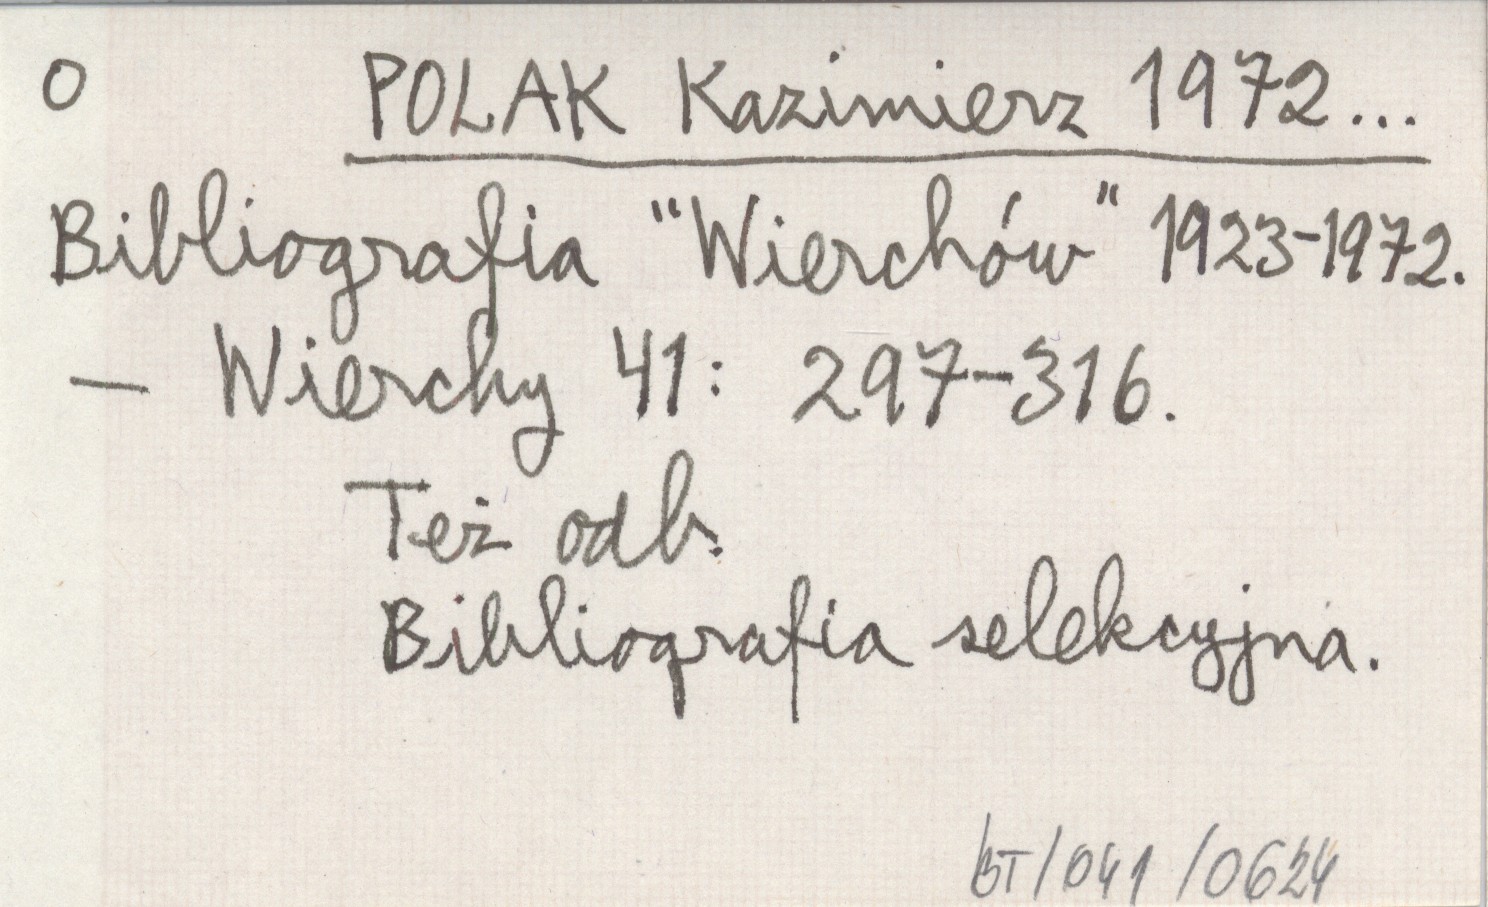 O POLAK Kazimierz 1972...
Bibliografia "Wierchów" 1923-1972.
— Wierchy 41: 297-316.
Też odb.
Bibliografia selekcyjna.
BT/041/0624